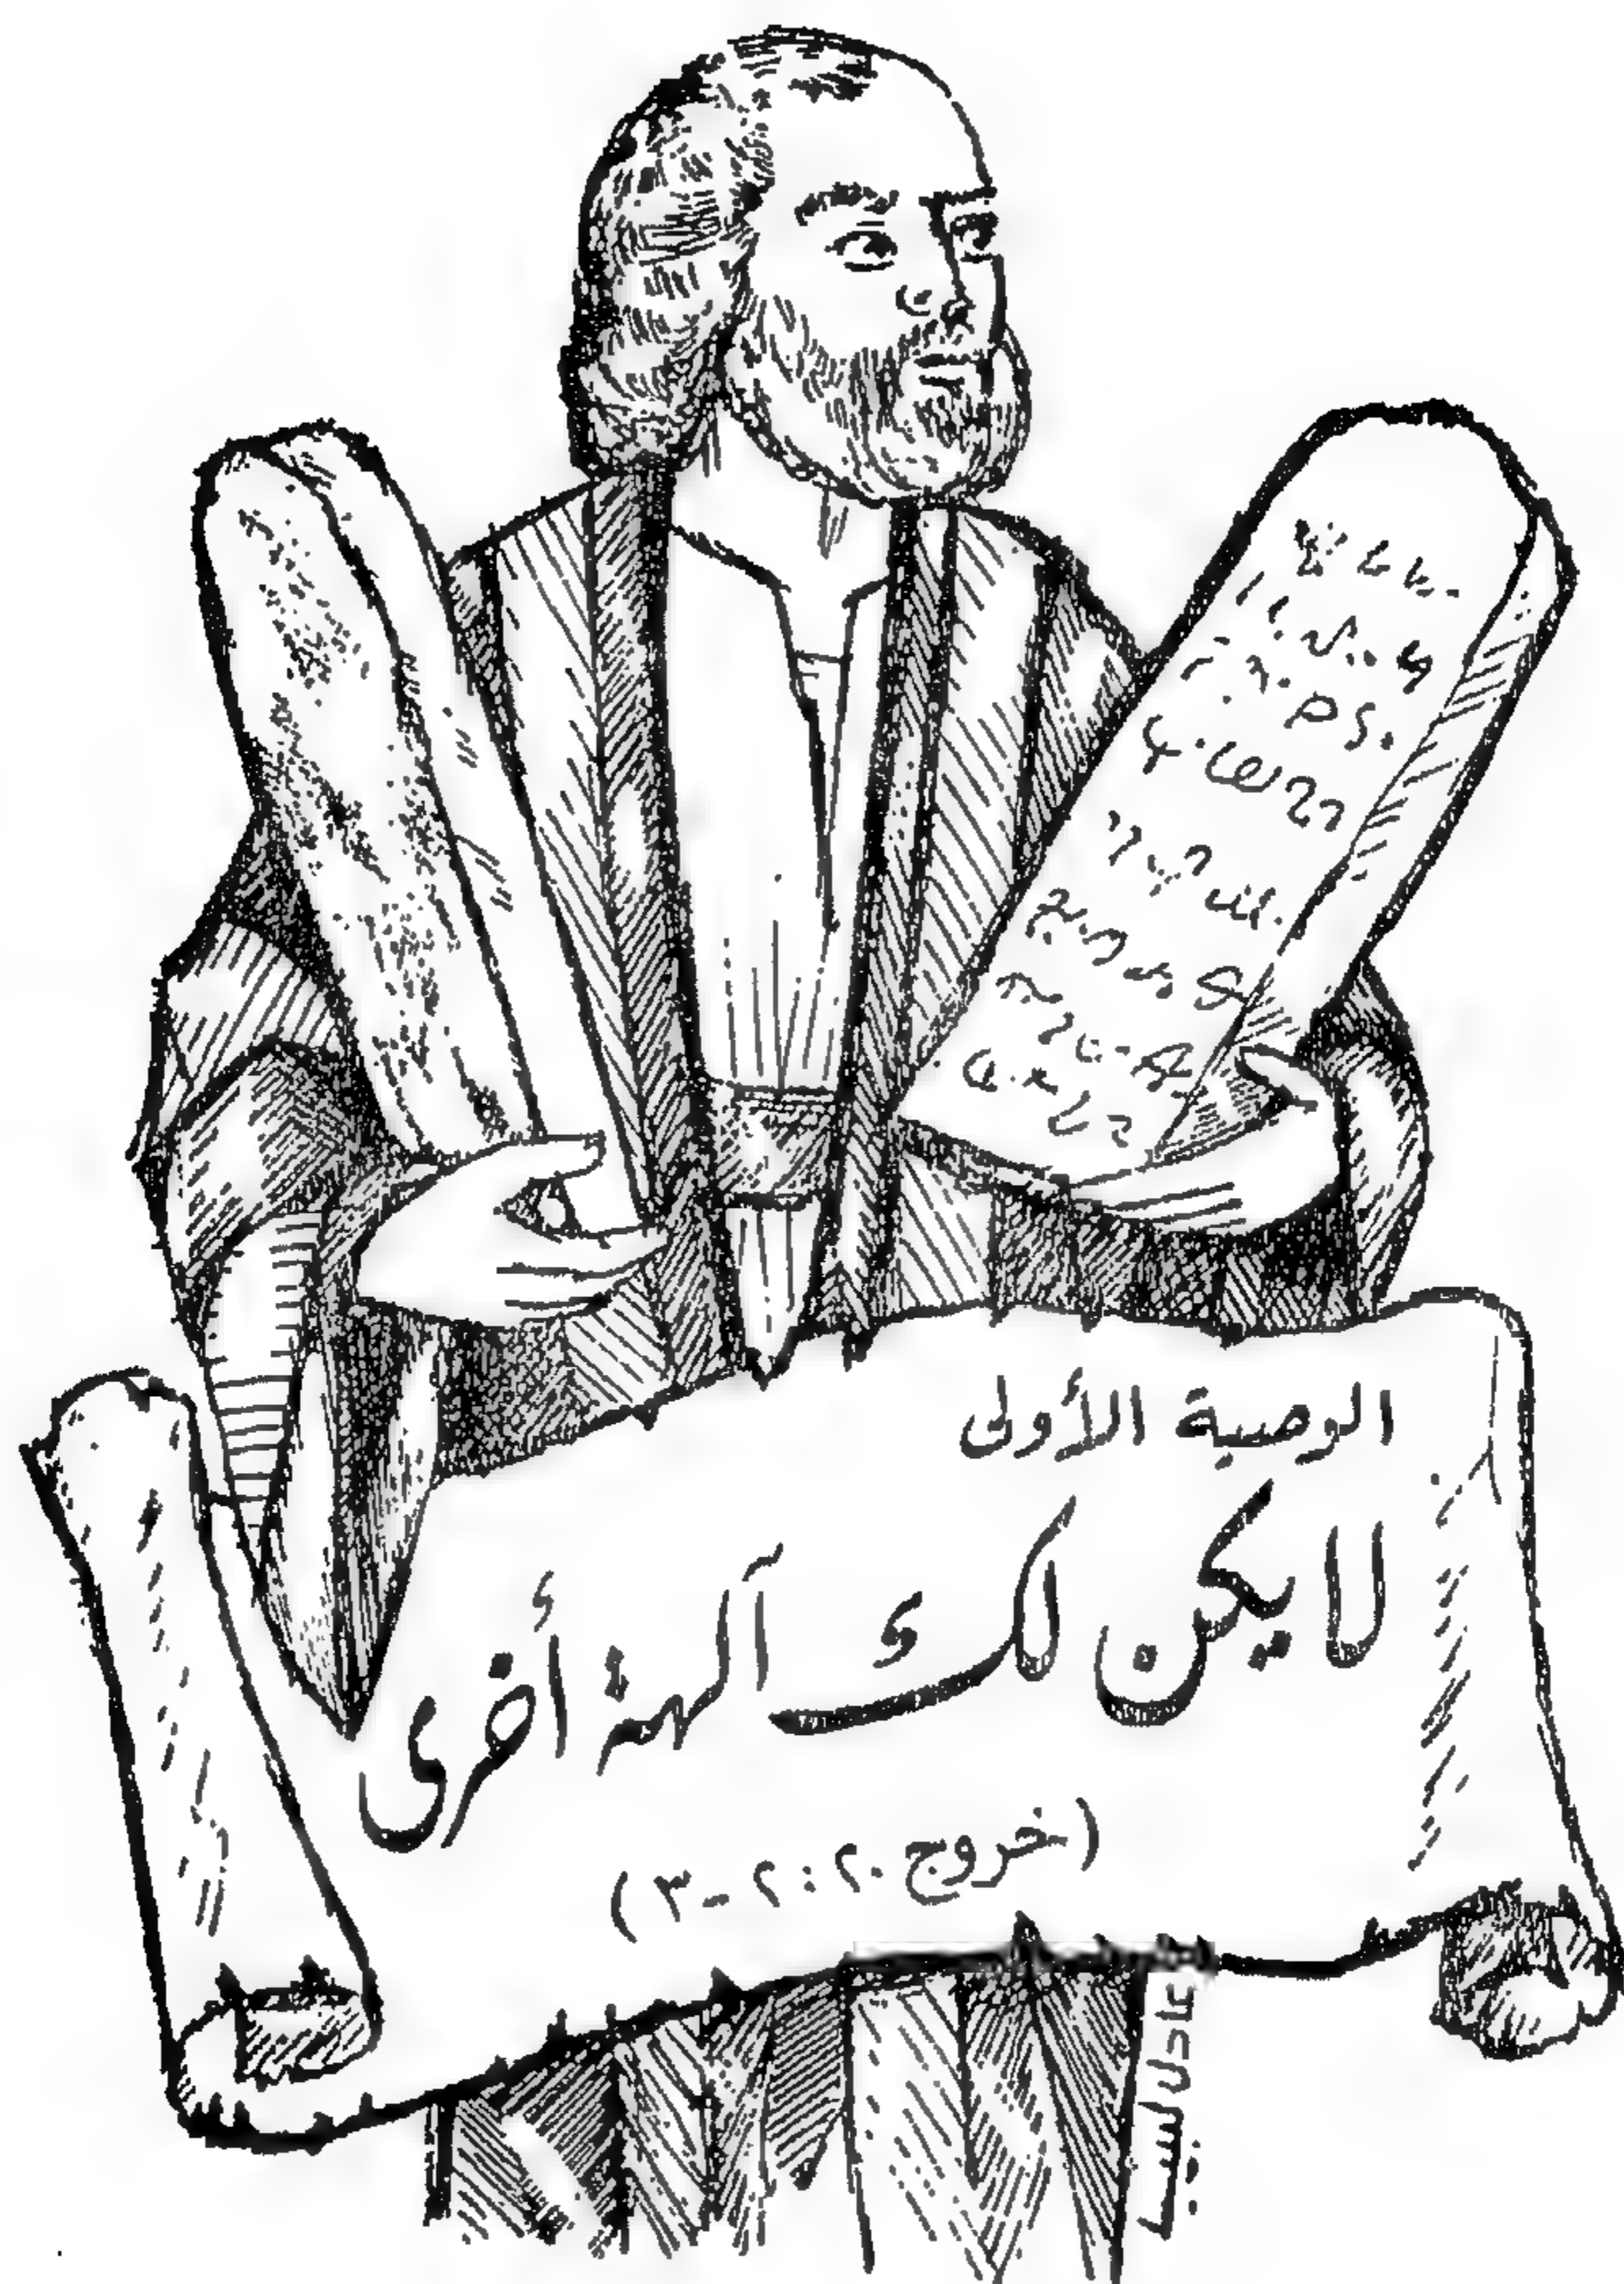 الوصية الأولى
لا يكن لك آلهة أخرى
(خروج ٢٠ : ٢ - ٣)